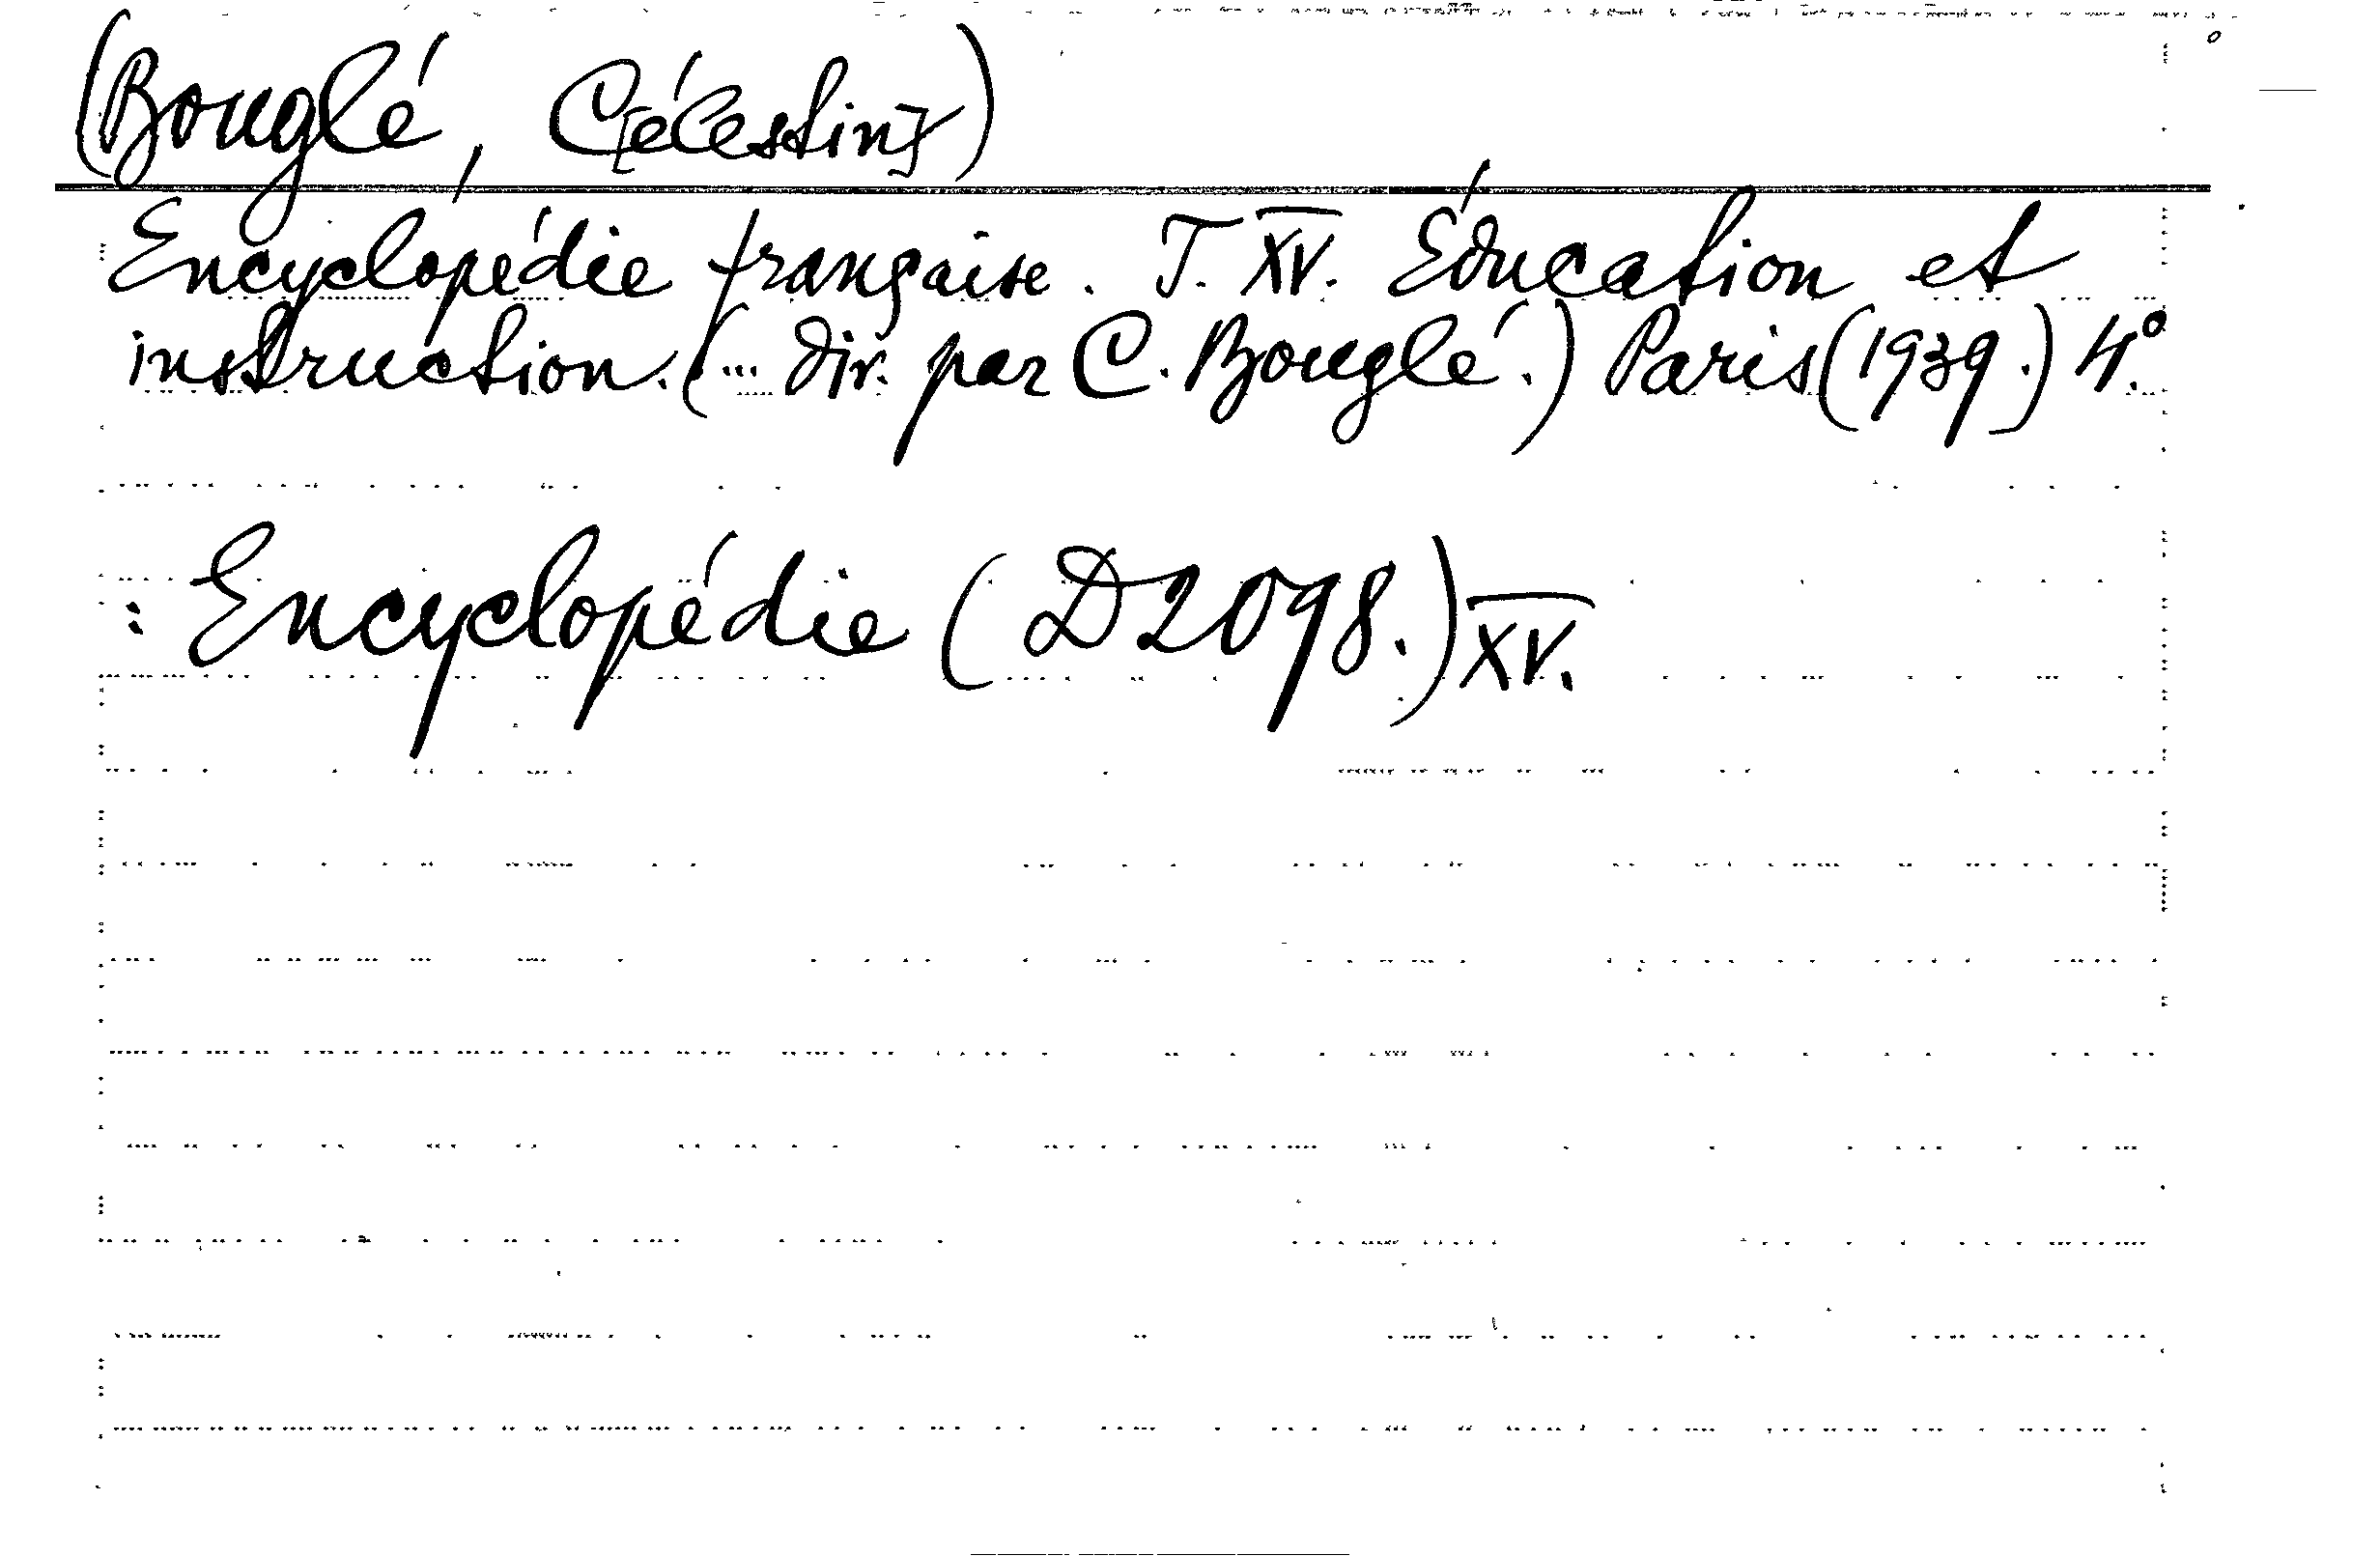 (Bouglé, C[élestin])
Encyclopédie française. T. XV. Éducation et
instruction. (... dir. par C. Bouglé.) Paris (1939.) 4°.
: Encyclopédie (D2098.) XV.